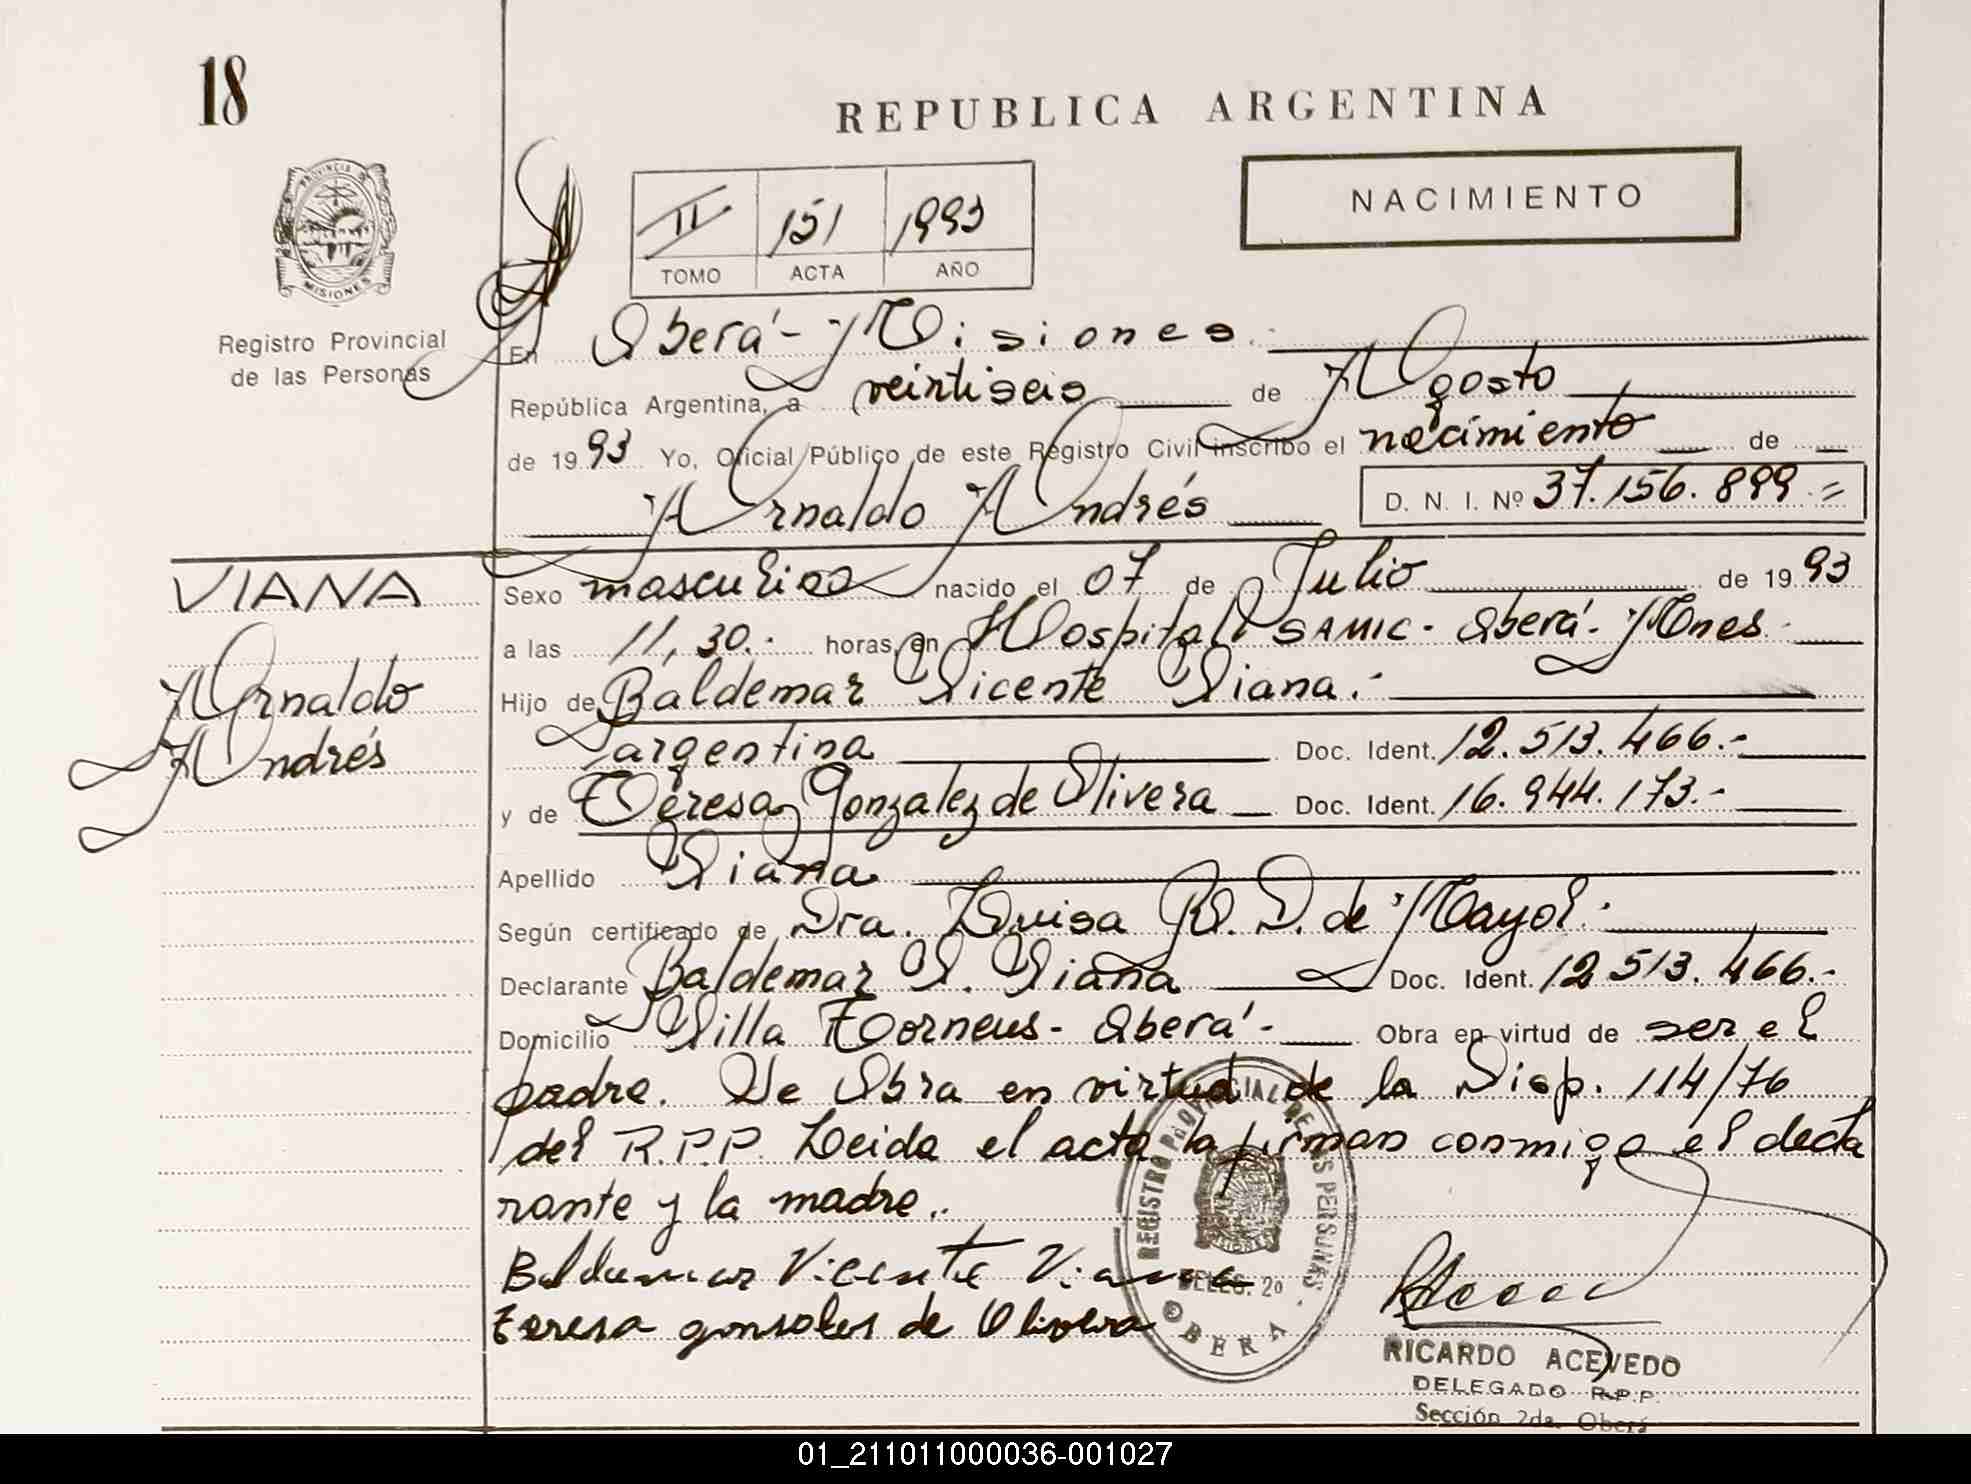 18
REPUBLICA ARGENTINA
PROVINCIA DE
MISIONES
Registro Provincial
de las Personas
II 151 1993
TOMO ACTA AÑO
NACIMIENTO
En Oberá - Misiones.
República Argentina, a veintiseis de Agosto
de 1993 Yo, Oficial Público de este Registro Civil inscribo el nacimiento de
Arnaldo Andrés D. N. I. Nº 37.156.899.=
VIANA
Arnaldo
Andrés
Sexo masculino nacido el 07 de Julio de 1993
a las 11,30.- horas, en Hospital SAMIC - Oberá - Mnes.
Hijo de Baldemar Vicente Viana.-
argentina Doc. Ident. 12.513.466.-
y de Teresa Gonzalez de Olivera Doc. Ident. 16.944.173.-
Apellido Viana
Según certificado de Dra. Luisa R. D. de Mayol.
Declarante Baldemar V. Viana Doc. Ident. 12.513.466.-
Domicilio Villa Torneus - Oberá - Obra en virtud de ser el
padre. Se Obra en virtud de la Disp. 114/76
del R.P.P. Leida el acta la firman conmigo el decla
rante y la madre..
Baldemar Vicente Viana
Teresa gonsales de Olivera
REGISTRO PROVINCIAL DE LAS PERSONAS
DELEG. 2º
OBERA
RICARDO ACEVEDO
DELEGADO R.P.P.
Sección 2da. Oberá
01_211011000036-001027